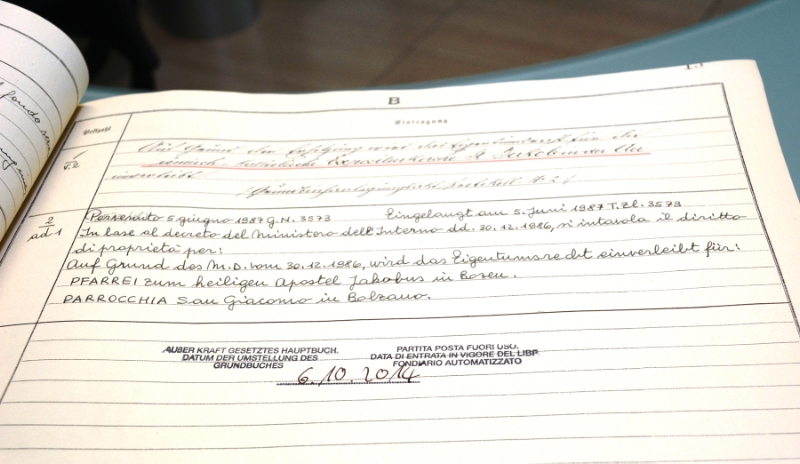 B
Postzahl
Eintragung
1
Auf Grund der Ersitzung wird das Eigentumsrecht für die
römisch katholische St. Jakob in der Au
einverleibt
2
ad 1
Pervenuto 5 giugno 1987 G.N. 3573 Eingelangt am 5. Juni 1987 T.Zl. 3573
In base al decreto del Ministero dell'Interno dd. 30.12.1986, si intavola il diritto
di proprietà per:
Auf Grund des M.D. vom 30.12.1986, wird das Eigentumsrecht einverleibt für:
PFARREI zum heiligen Apostel Jakobus in Bozen.
PARROCCHIA San Giacomo in Bolzano.
AUßER KRAFT GESETZTES HAUPTBUCH. PARTITA POSTA FUORI USO.
DATUM DER UMSTELLUNG DES DATA DI ENTRATA IN VIGORE DEL LIBR.
GRUNDBUCHES FONDIARIO AUTOMATIZZATO
6.10.2014